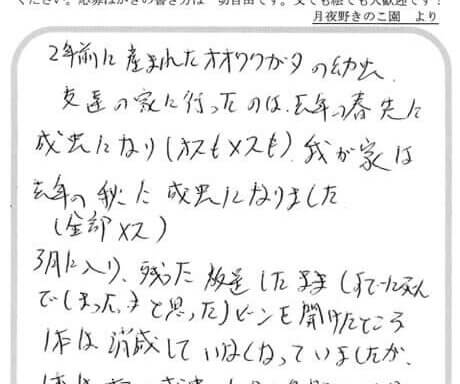 ください。応募はがきの書き方は一切自由です。文でも絵でも大歓迎です!
月夜野きのこ園 より
2年前に産まれたオオクワガタの幼虫、
友達の家に行ったのは、去年の春先に
成虫になり(オスもメスも)、我が家は
去年の秋に成虫になりました
(全部メス)
3月に入り、残った放置したまま(すでに死ん
でしまった、と思った)ビンを開けたところ
1本は消滅していなくなっていましたが、